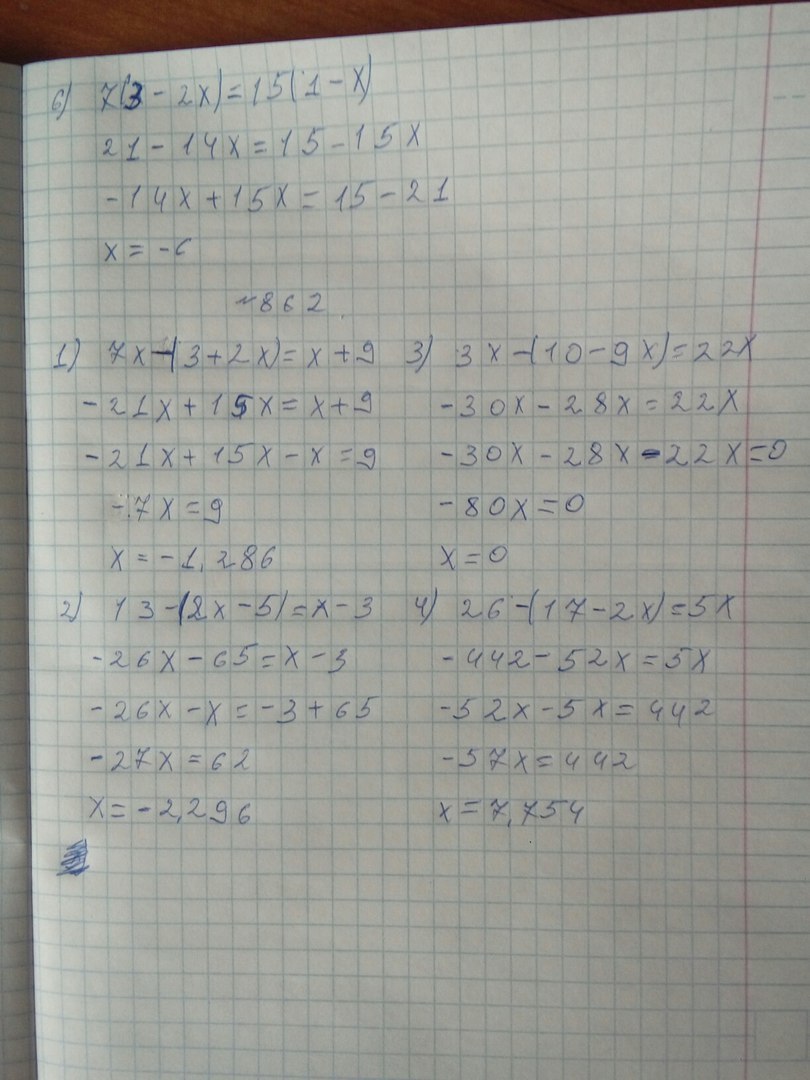 6) 7(3 - 2x) = 15(1 - x)
21 - 14x = 15 - 15x
-14x + 15x = 15 - 21
x = -6
~862
1) 7x - (3 + 2x) = x + 9
-21x + 15x = x + 9
-21x + 15x - x = 9
-7x = 9
x = -1,286
2) 13 - (2x - 5) = x - 3
-26x - 65 = x - 3
-26x - x = -3 + 65
-27x = 62
x = -2,296
3) 3x - (10 - 9x) = 22x
-30x - 28x = 22x
-30x - 28x - 22x = 0
-80x = 0
x = 0
4) 26 - (17 - 2x) = 5x
-442 - 52x = 5x
-52x - 5x = 442
-57x = 442
x = 7,754